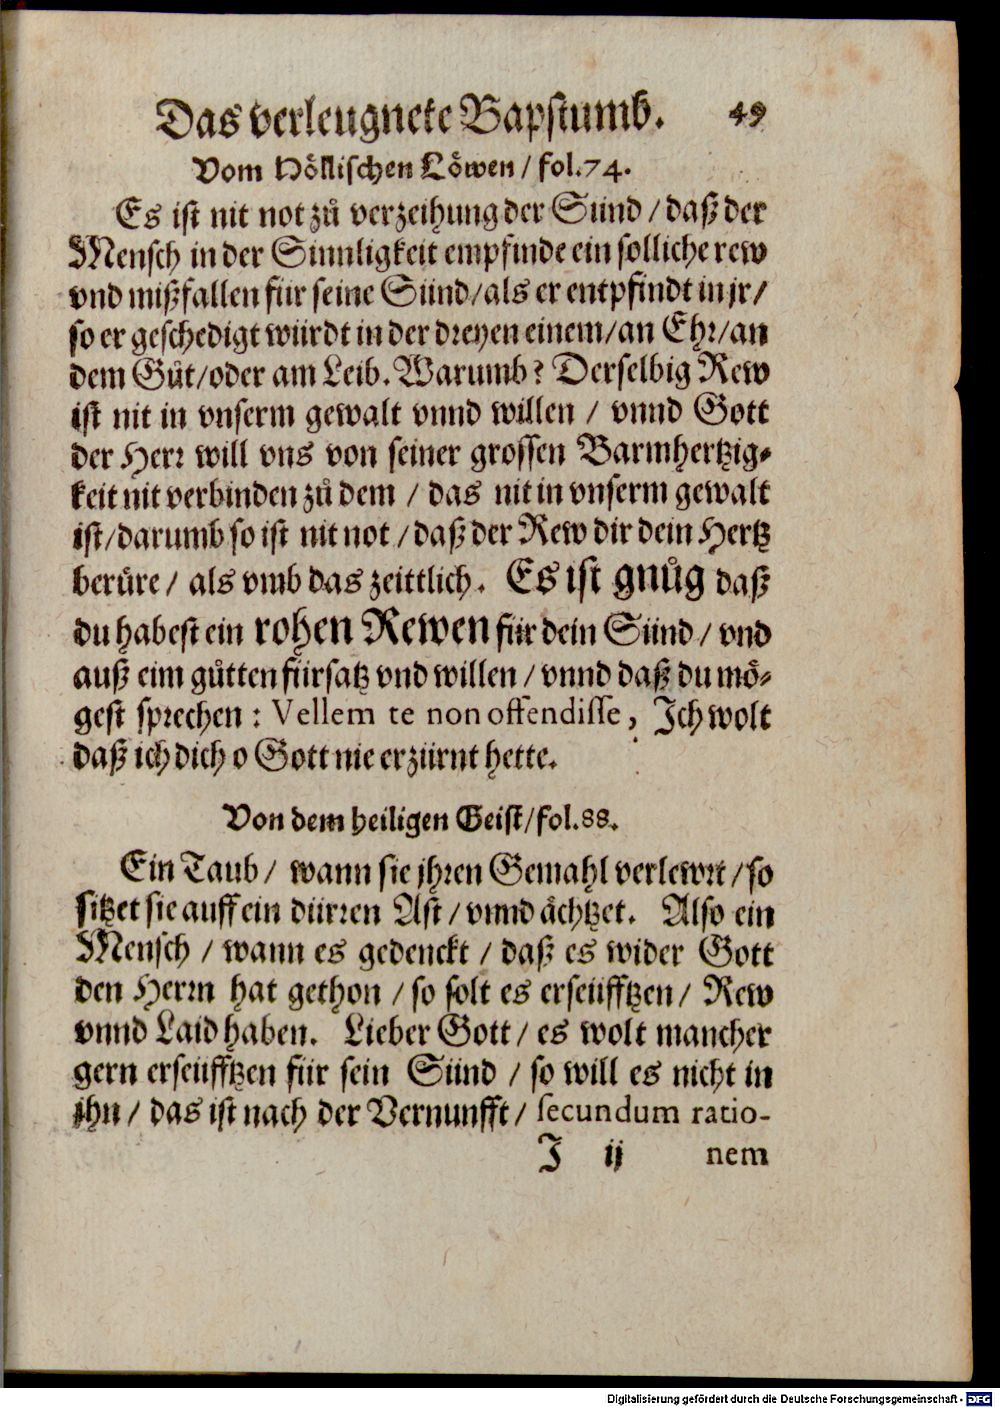 Das verleugnete Bapstumb. 49
Vom Höllischen Löwen / fol. 74.
Es ist nit not zů verzeihung der Sünd / daß der
Mensch in der Sinnligkeit empfinde ein solliche rew
vnd mißfallen für seine Sünd / als er entpfindt in jr /
so er geschedigt würdt in der dreyen einem / an Ehr / an
dem Gůt / oder am Leib. Warumb? Derselbig Rew
ist nit in vnserm gewalt vnnd willen / vnnd Gott
der Herr will vns von seiner grossen Barmhertzig-
keit nit verbinden zů dem / das nit in vnserm gewalt
ist / darumb so ist nit not / daß der Rew dir dein Hertz
berůre / als vmb das zeittlich. Es ist gnůg daß
du habest ein rohen Rewen für dein Sünd / vnd
auß eim gůtten fürsatz vnd willen / vnnd daß du mö-
gest sprechen : Vellem te non offendisse, Ich wolt
daß ich dich o Gott nie erzürnt hette.
Von dem heiligen Geist / fol. 88.
Ein Taub / wann sie jhren Gemahl verlewrt / so
sitzet sie auff ein dürren Ast / vnnd ächtzet. Also ein
Mensch / wann es gedenckt / daß es wider Gott
den Herrn hat gethon / so solt es erseüfftzen / Rew
vnnd Laid haben. Lieber Gott / es wolt mancher
gern erseüfftzen für sein Sünd / so will es nicht in
jhn / das ist nach der Vernunfft / secundum ratio-
J ij nem
Digitalisierung gefördert durch die Deutsche Forschungsgemeinschaft - DFG